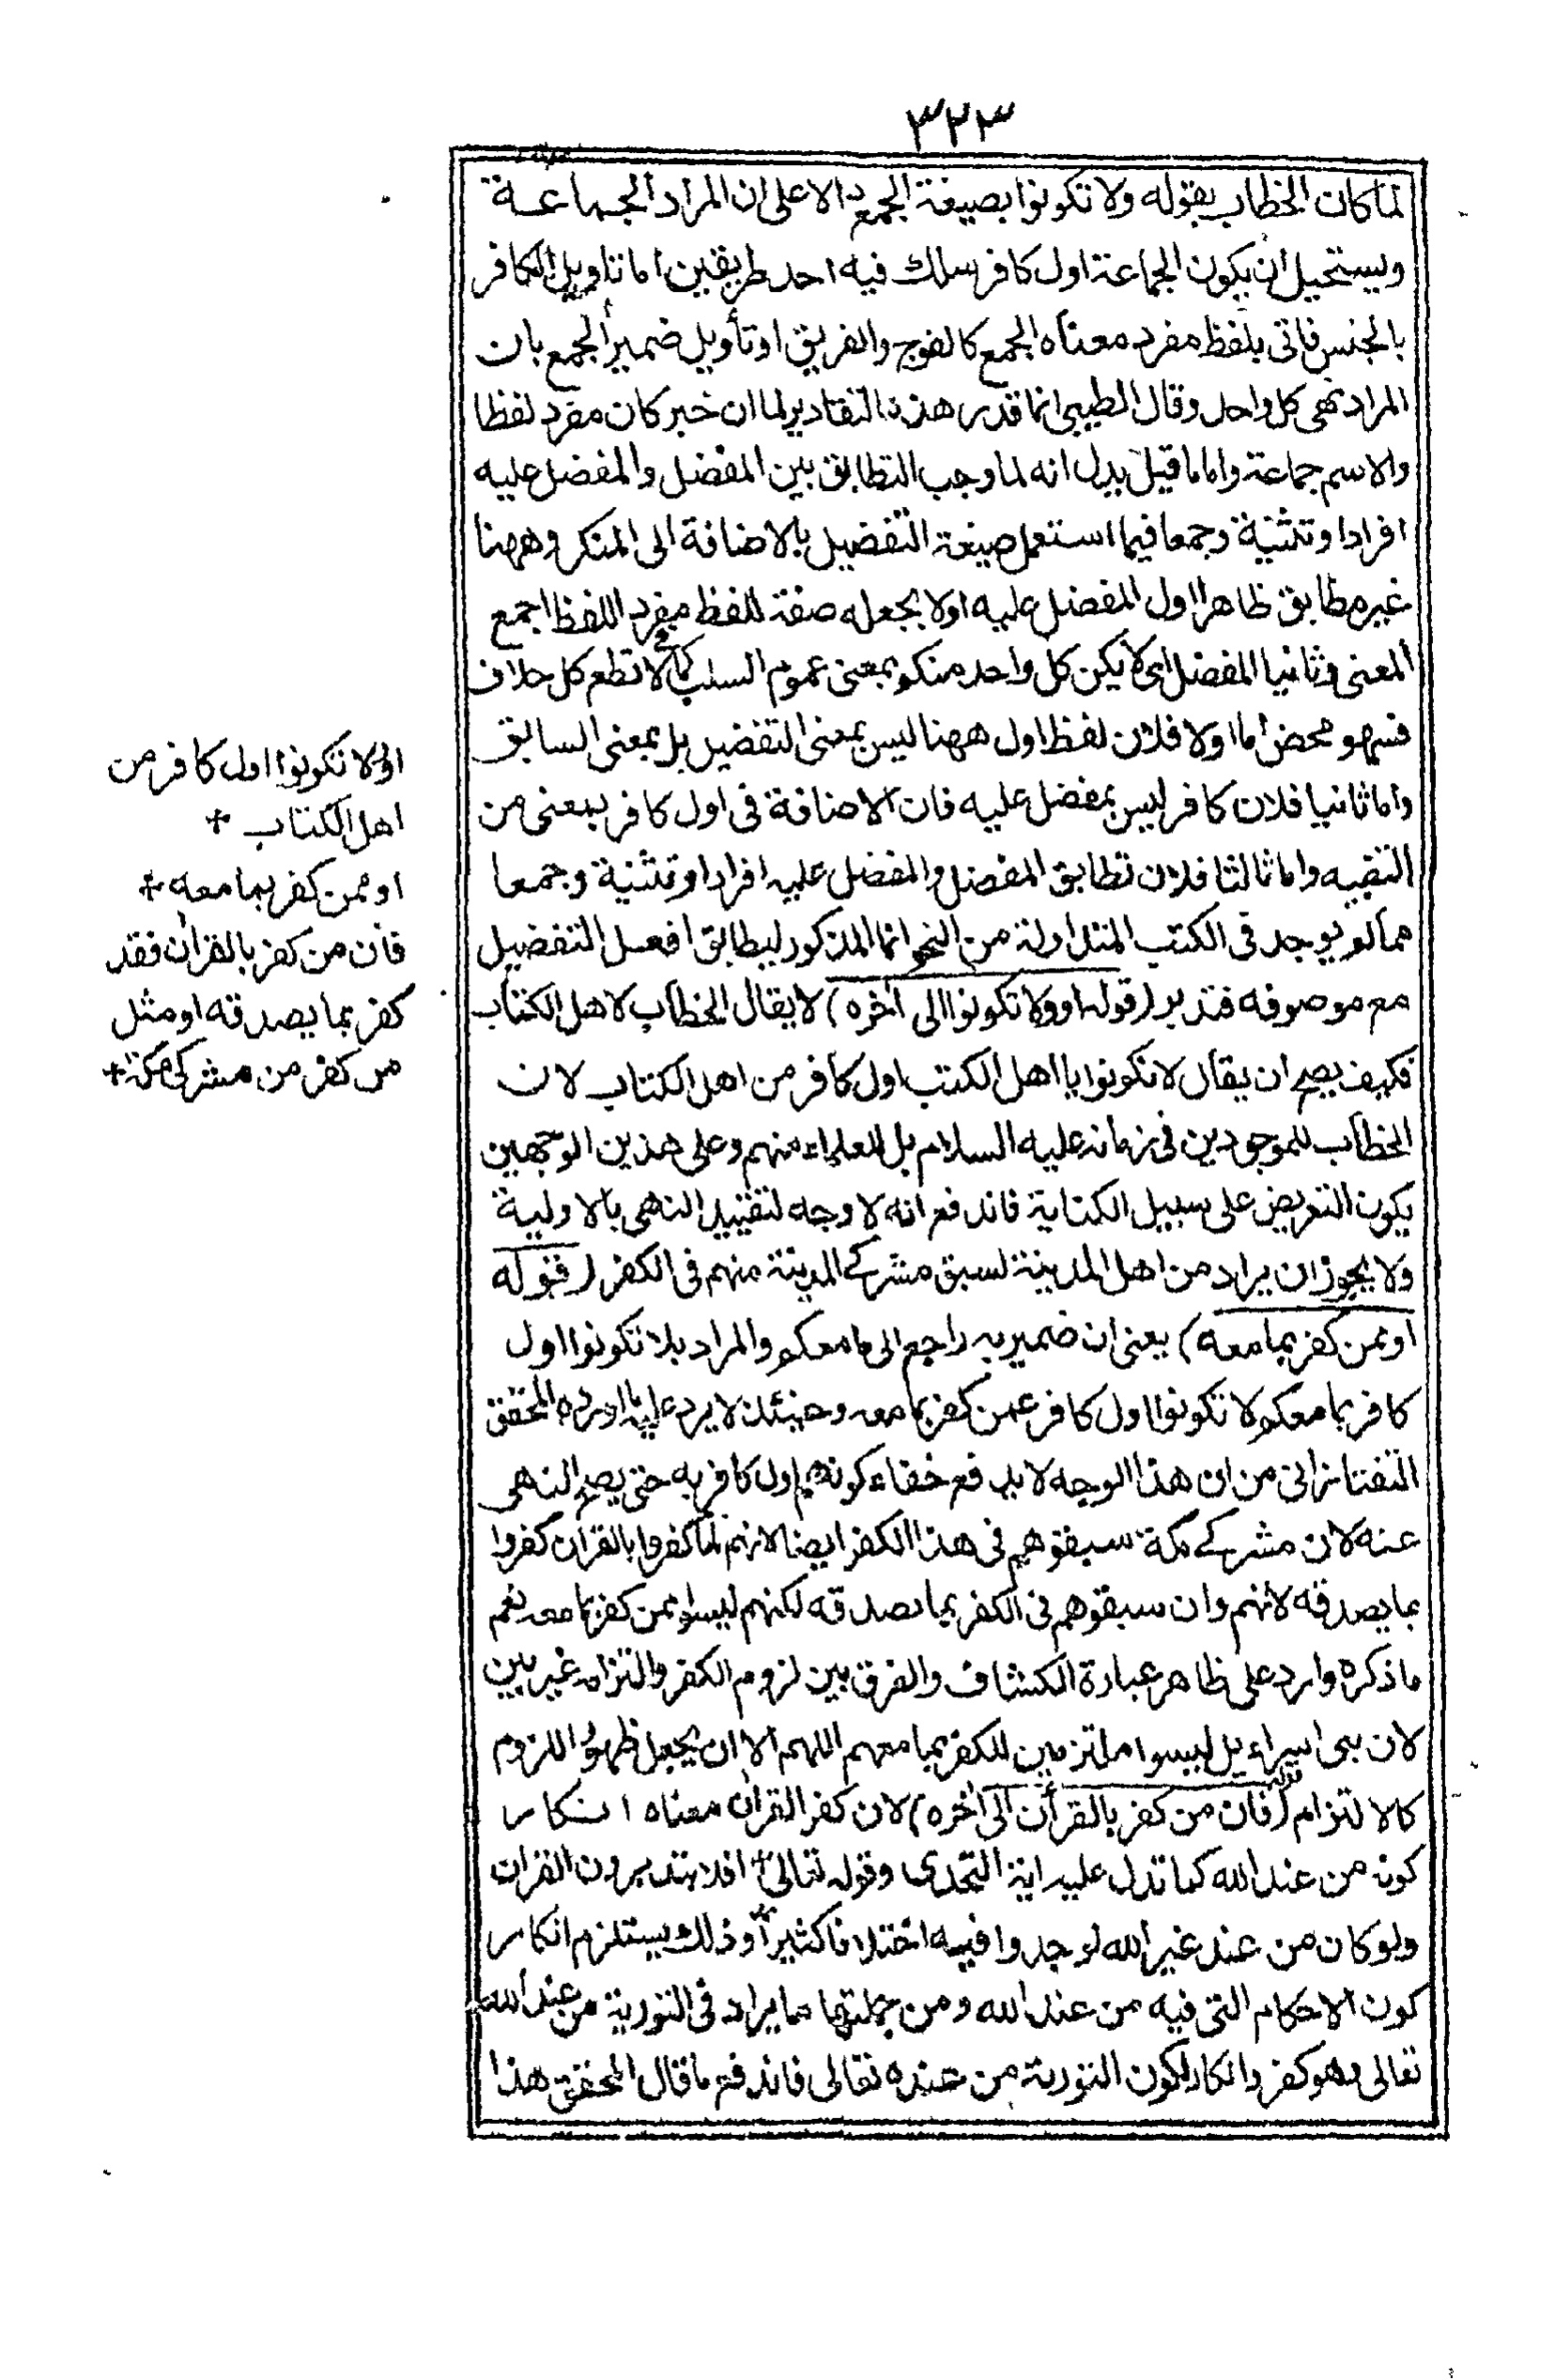 ٣٢٣
لما كان الخطاب بقوله ولا تكونوا بصيغة الجمع دالا على ان المراد الجماعة
ويستحيل ان يكون الجماعة اول كافر سلك فيه احد طريقين اما تاويل الكافر
بالجنس فاتى بلفظ مفرد معناه الجمع كالفوج والفريق او تأويل ضمير الجمع بان
المراد نهى كل واحد وقال الطيبى انما قدر هذه التقادير لما ان خبر كان مفرد لفظا
والاسم جماعة واما ما قيل بدل انه لما وجب التطابق بين المفضل والمفضل عليه
افرادا وتثنية وجمعا فيما استعمل صيغة التفضيل بالاضافة الى المنكر وههنا
غير مطابق ظاهرا اول المفضل عليه اولا بجعله صفة للفظ مفرد اللفظ جمع
المعنى وثانيا المفضل اى لا يكن كل واحد منكم بمعنى عموم السلب كما فى لا تطع كل حلاف
فسهو محض اما اولا فلان لفظ اول ههنا ليس بمعنى التفضيل بل بمعنى السابق
واما ثانيا فلان كافر ليس بمفضل عليه فان الاضافة فى اول كافر بمعنى من
واما ثالثا فلان تطابق المفضل والمفضل عليه افرادا وتثنية وجمعا
مما لم يوجد فى الكتب المتداولة من النحو انما المذكور ليطابق افعل التفضيل
مع موصوفه فتدبر (قوله او ولا تكونوا الى اخره) لا يقال الخطاب لاهل الكتاب
فكيف يصح ان يقال لا تكونوا يا اهل الكتب اول كافر من اهل الكتاب لان
الخطاب للموجودين فى زمانه عليه السلام بل للعلماء منهم وعلى هذين الوجهين
يكون التعريض على سبيل الكناية فاندفع انه لا وجه لتقييد النهى بالاولية
ولا يجوز ان يراد من اهل المدينة لسبق مشركے المدينة منهم فى الكفر (قوله
او ممن كفر بما معه) يعنى ان ضمير به راجع الى ما معكم والمراد بلا تكونوا اول
كافر بما معكم لا تكونوا اول كافر ممن كفر بما معه وحينئذ لا يرد عليه ما اورده المحقق
التفتازانى من ان هذا الوجه لا يدفع خفاء كونهم اول كافر به حتى يصح النهى
عنه لان مشركے مكة سبقوهم فى هذا الكفر ايضا لانهم لما كفروا بالقران كفروا
بما يصدقه لانهم وان سبقوهم فى الكفر بما يصدقه لكنهم ليسوا ممن كفر بما معه نعم
ما ذكره وارد على ظاهر عبارة الكشاف والفرق بين لزوم الكفر والتزامه غير بين
لان بنى اسراءيل ليسوا ملتزمين للكفر بما معهم اللهم الا ان يجعل ظهور اللزوم
كالالتزام (قوله فان من كفر بالقرأن الى اخره) لان كفر القران معناه انكار
كونه من عند الله كما تدل عليه اية التحدى وقوله تعالى افلا يتدبرون القران
ولو كان من عند غير الله لوجدوا فيه اختلافا كثيرا وذلك يستلزم انكار
كون الاحكام التى فيه من عند الله ومن جملتها ما يراد فى التورية من عند الله
تعالى وهو كفر وانكار لكون التورية من عنده تعالى فاندفع ما قال المحقق هذا
اى لا تكونوا اول كافر من
اهل الكتاب +
او ممن كفر بما معه +
فان من كفر بالقران فقد
كفر بما يصدقه او مثل
من كفر من مشركى مكة +